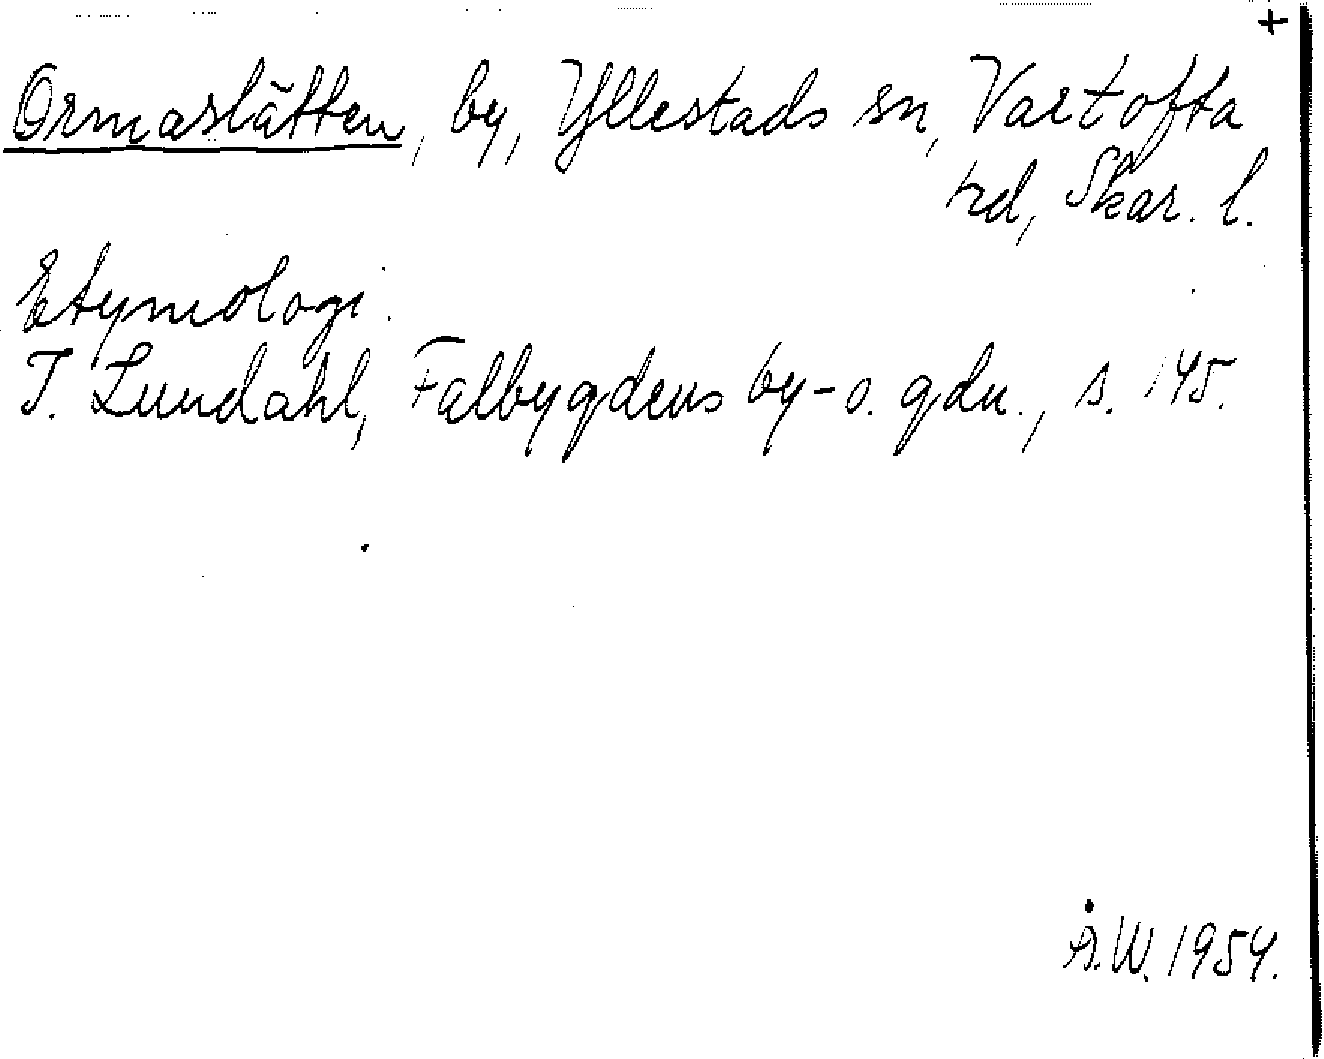 +
Ormaslätten, by, Yllestads sn, Vartofta
hd, Skar. l.
Etymologi.
I. Lundahl, Falbygdens by- o. gdn., s. 145.
Å.W. 1954.